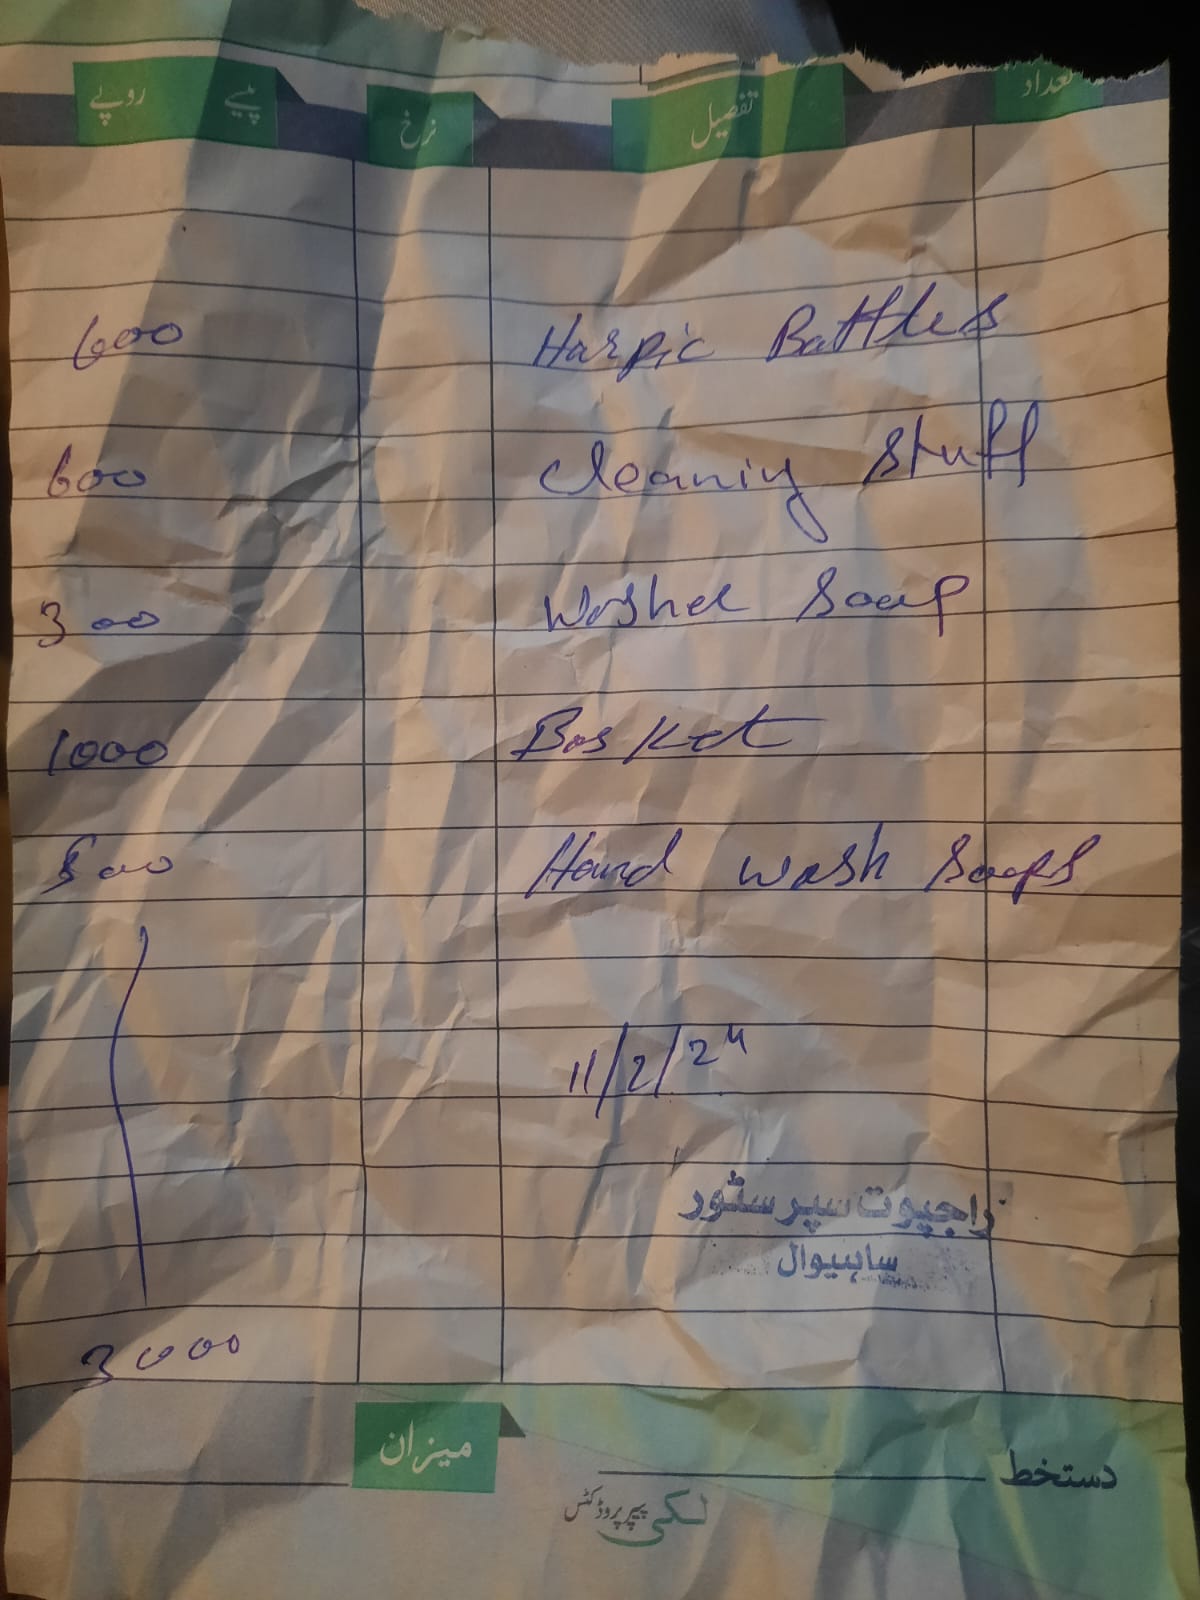 تعداد تفصیل نرخ پیسے روپے
Harpic Battles 600
Cleaning Stuff 600
Washel Soap 300
Basket 1000
Hand wash Soaps 500
11/2/24
راجپوت سپر سٹور
ساہیوال
3000
میزان
دستخط
لکی پیپر پروڈکٹس